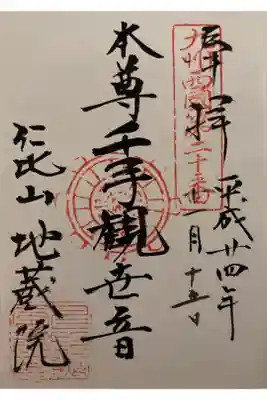 九州西国第二十番
奉拝
平成廿四年
十一月十五日
本尊千手観世音
仁比山地蔵院